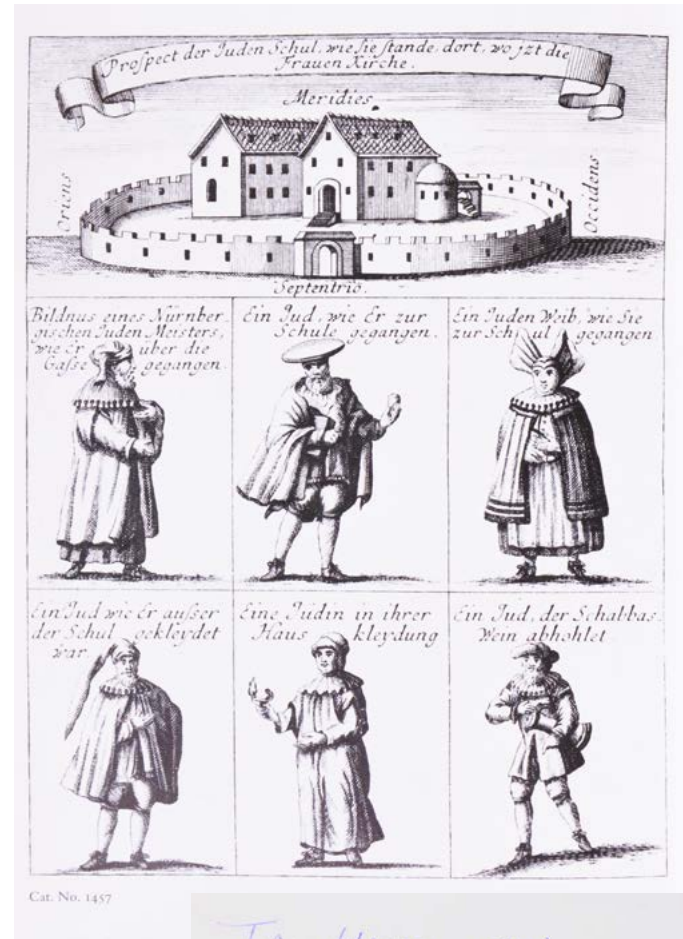 Prospect der Juden Schul, wie sie stande, dort, wo jzt die
Frauen Kirche.
Meridies.
Oriens
Occidens
Septentrio.
Bildnus eines Nürnber-
gischen Juden Meisters,
wie Er über die
Gasse gegangen.
Ein Jud, wie Er zur
Schule gegangen.
Ein Juden Weib, wie Sie
zur Schul gegangen
Ein Jud wie Er ausser
der Schul gekleydet
war
Eine Jüdin in ihrer
Haus kleydung
Ein Jud, der Schabbas
Wein abhohlet
Cat. No. 1457